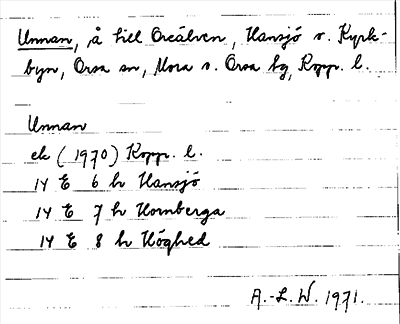 Unnan, å till Oreälven, Hansjö o. Kyrk-
byn, Orsa sn, Mora o. Orsa tg, Kopp. l.
Unnan
ek (1970) Kopp. l.
14 E 6 h Hansjö
14 E 7 h Hornberga
14 E 8 h Höghed
A.-L. W. 1971.